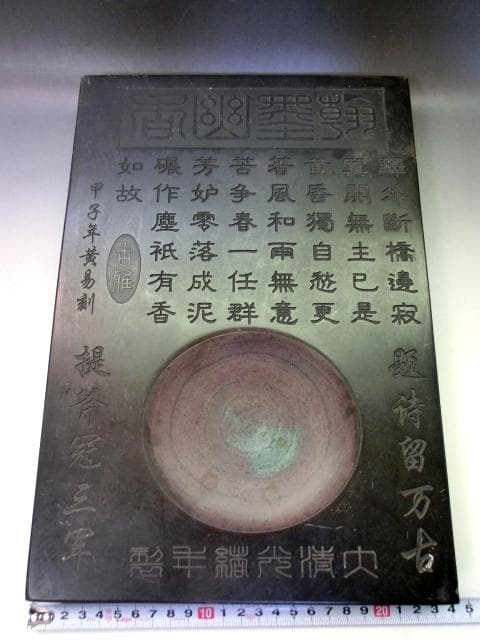 翰墨幽香
驛外斷橋邊寂
寞開無主已是
黃昏獨自愁更
著風和雨無意
苦爭春一任群
芳妒零落成泥
碾作塵祇有香
如故
甲子年黃易刻
古雅
题诗留万古
提斧冠三军
大清光緒年製
1 2 3 4 5 6 7 8 9 10 1 2 3 4 5 6 7 8 9 20 1 2 3 4 5